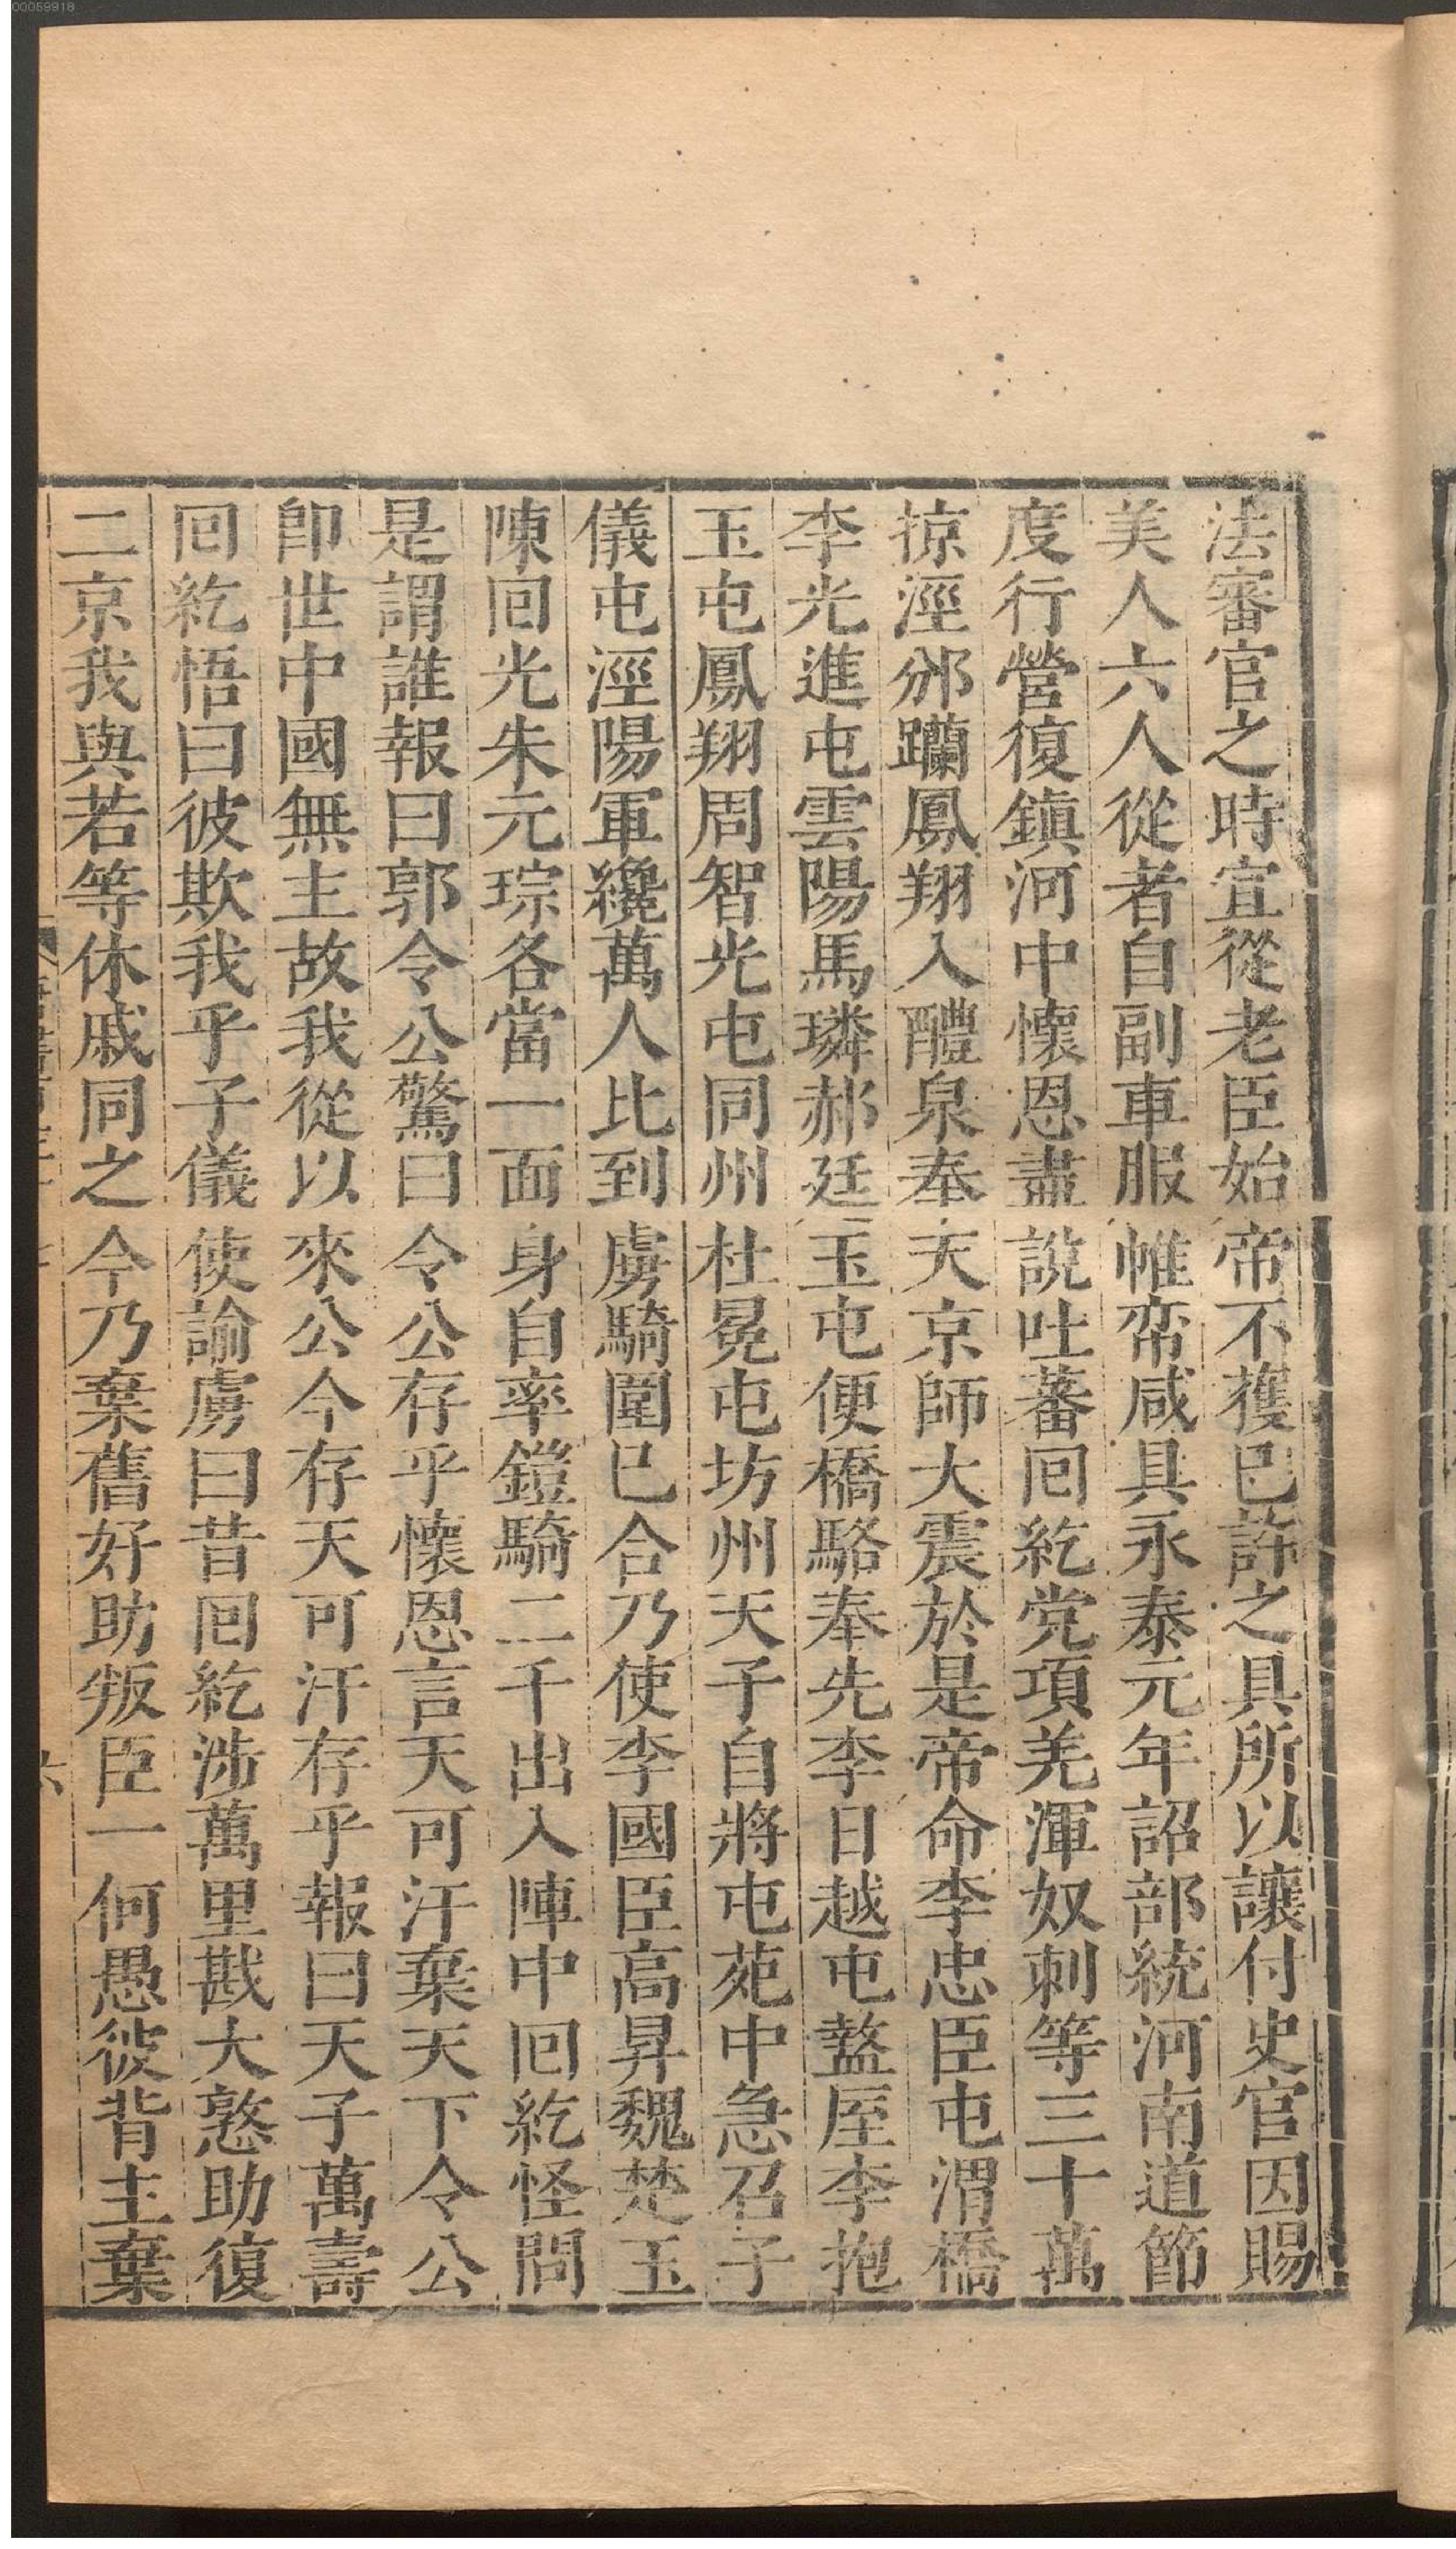 00059918
法審官之時宜從老臣始帝不獲已許之具所以讓付史官因賜
美人六人從者自副車服帷帟咸具永泰元年詔部統河南道節
度行營復鎮河中懷恩盡說吐蕃囘紇党項羌渾奴剌等三十萬
掠涇邠躪鳳翔入醴泉奉天京師大震於是帝命李忠臣屯渭橋
李光進屯雲陽馬璘郝廷玉屯便橋駱奉先李日越屯盩厔李抱
玉屯鳳翔周智光屯同州杜冕屯坊州天子自將屯苑中急召子
儀屯涇陽軍纔萬人比到虜騎圍已合乃使李國臣高昇魏楚玉
陳囘光朱元琮各當一面身自率鎧騎二千出入陣中囘紇怪問
是謂誰報曰郭令公驚曰令公存乎懷恩言天可汗棄天下令公
即世中國無主故我從以來公今存天可汗存乎報曰天子萬壽
囘紇悟曰彼欺我乎子儀使諭虜曰昔囘紇涉萬里戡大憝助復
二京我與若等休戚同之今乃棄舊好助叛臣一何愚彼背主棄
六